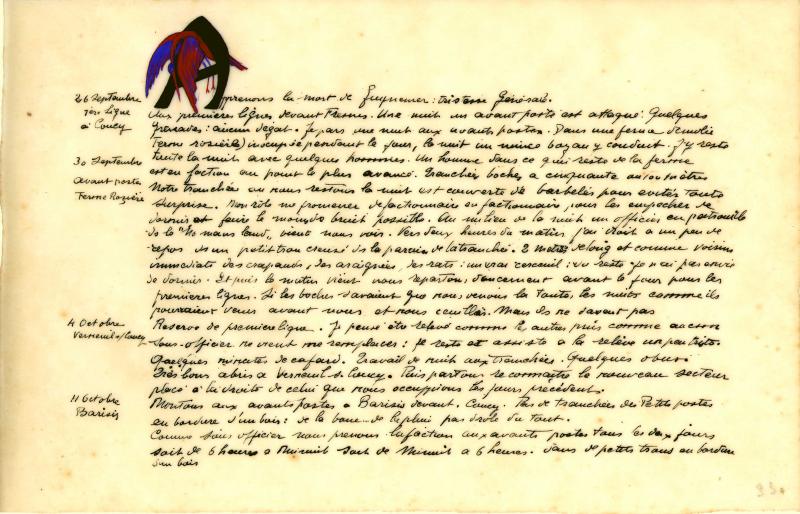 26 Septembre
1ère Ligne
à Coucy
Apprenons la mort de Guynemer : tristesse générale.
Aux premières lignes devant Fresnes. Une nuit un avant poste est attaqué. Quelques
grenades : aucun dégat. Je pars une nuit aux avants postes. Dans une ferme démolie
(ferme rosière) inoccupée pendant le jour, la nuit un mince boyau y conduit. J'y reste
30 Septembre
avant postes
Ferme Rozière
toute la nuit avec quelques hommes. Un homme dans ce qui reste de la ferme
est en faction au point le plus avancé. Tranchées boches a cinquante ou 100 mètres
Notre tranchée ou nous restons la nuit est couverte de barbelés pour eviter toute
surprise. Mon rôle me promener de factionnaire en factionnaire pour les empecher de
dormir et faire le moins de bruit possible. Au milieu de la nuit un officier en patrouille
ds le "No mans land" vient nous voir. Vers deux heures du matin j'ai droit a un peu de
repos ds un petit trou creusé ds la paroi de la tranchée. 2 metres de long et comme voisins
immediats des crapauds, des araignées, des rats : un vrai cercueil : du reste je n'ai pas envie
de dormir. Et puis le matin vient nous repartons doucement avant le jour pour les
premières lignes. Si les boches savaient que nous venons là toutes les nuits comme ils
pourraient venir avant nous et nous cueillir. Mais ils ne savent pas
4 Octobre
Verneuil s/Coucy
Reserve de première ligne. Je pense être relevé comme les autres puis comme aucun
sous-officier ne vient me remplacer : je reste et assiste a la relève un peu triste.
Quelques minutes de cafard. Travail de nuit aux tranchées. Quelques obus.
Très bons abris a Verneuil s. Coucy. Puis partons reconnaitre le nouveau secteur
placé a la droite de celui que nous occupions les jours précédents.
11 Octobre
Barisis
Montons aux avants postes a Barisis devant Coucy. Pas de tranchées des Petits postes
en bordure d'un bois : de la boue de la pluie pas drole du tout.
Comme sous officier nous prenons la faction aux avants postes tous les deux jours
soit de 6 heures a Minuit soit de Minuit a 6 heures. dans de petits trous en bordure
d'un bois